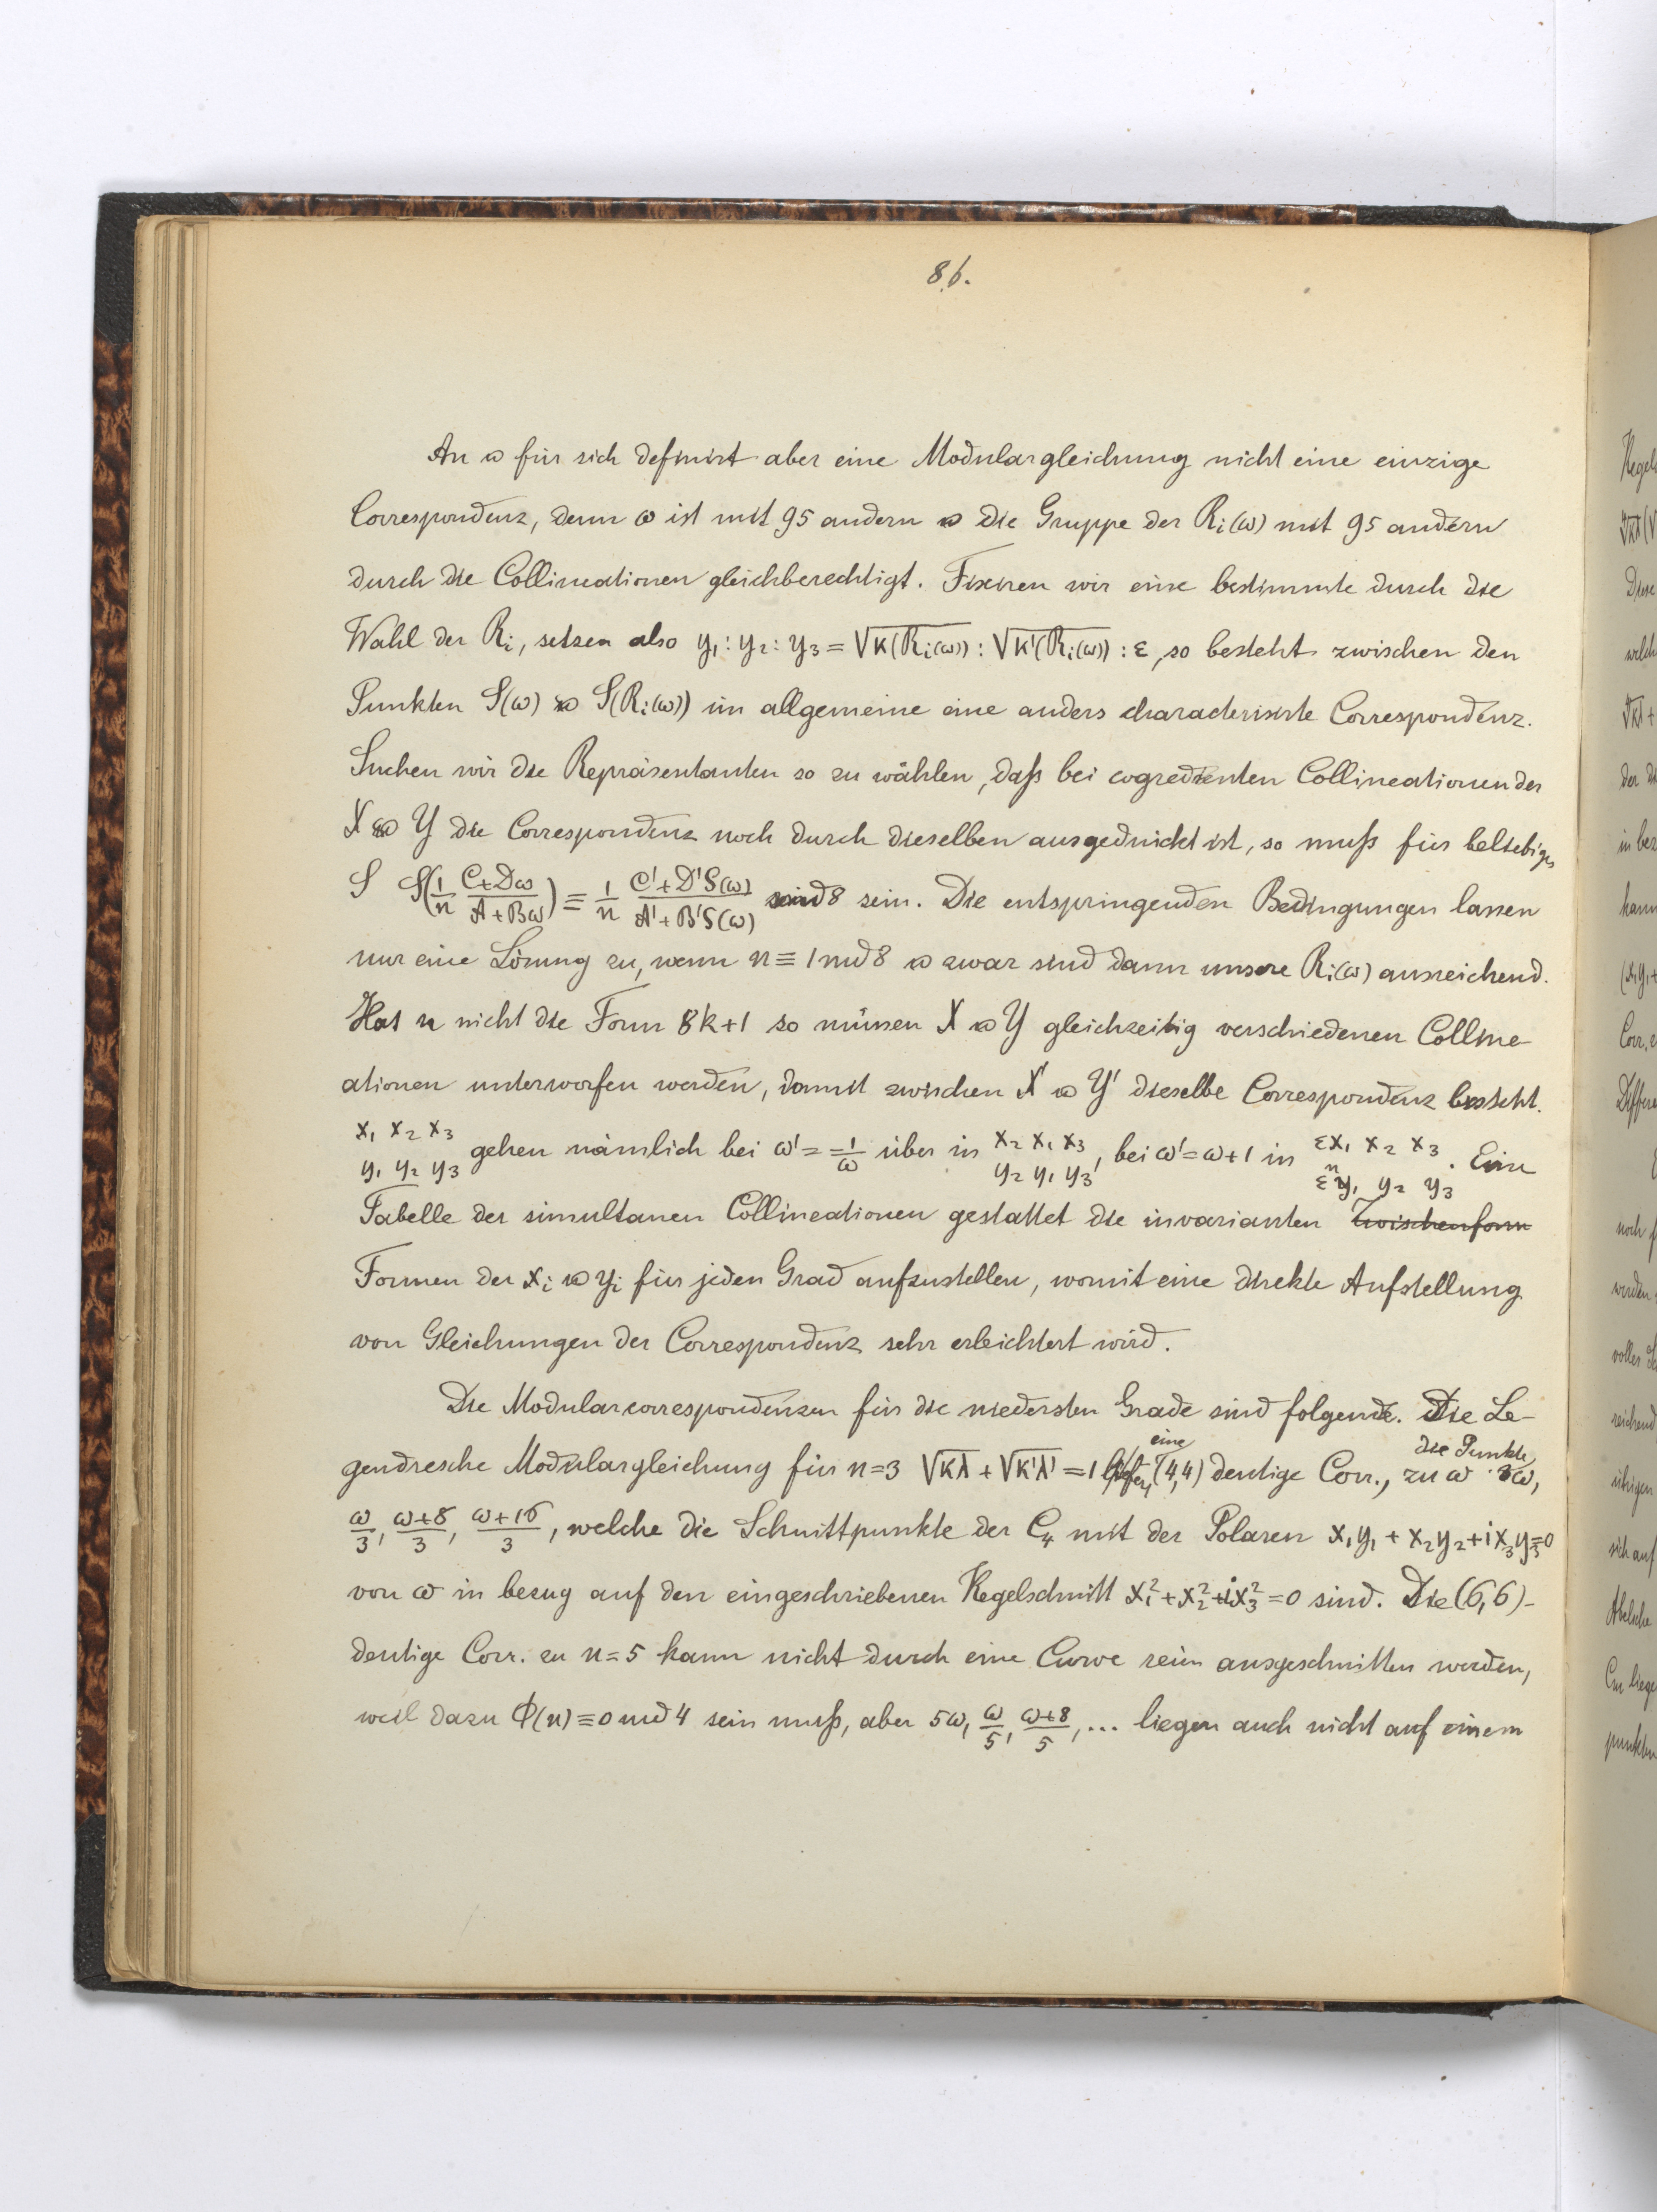 86.
An & für sich definirt aber eine Modulargleichung nicht eine einzige
Correspondenz, denn ω ist mit 95 andern & die Gruppe der Ri(ω) mit 95 andern
durch die Collineationen gleichberechtigt. Fixiren wir eine bestimmte durch die
Wahl der Ri, setzen also y₁:y₂:y₃ = √κ(Ri(ω)) : √κ'(Ri(ω)) : ε, so besteht zwischen den
Punkten S(ω) & S(Ri(ω)) im allgemeine eine anders characterisirte Correspondenz.
Suchen wir die Repräsentanten so zu wählen, daß bei cogredienten Collineationen der
X & Y die Correspondenz noch durch dieselben ausgedrückt ist, so muß für beliebiges
S S(1/n (C+Dω)/(A+Bω)) ≡ 1/n (C'+D'S(ω))/(A'+B'S(ω)) mod 8 sein. Die entspringenden Bedingungen lassen
nur eine Lösung zu, wenn n ≡ 1 mod 8 & zwar sind dann unsere Ri(ω) ausreichend.
Hat n nicht die Form 8k+1 so müssen X & Y gleichzeitig verschiedenen Colline-
ationen unterworfen werden, damit zwischen X' & Y' dieselbe Correspondenz besteht.
x₁ x₂ x₃ / y₁ y₂ y₃ gehen nämlich bei ω' = -1/ω über in x₂ x₁ x₃ / y₂ y₁ y₃, bei ω' = ω+1 in εx₁ x₂ x₃ / εⁿy₁ y₂ y₃. Eine
Tabelle der simultanen Collineationen gestattet die invarianten Zwischenform
Formen der xi & yi für jeden Grad aufzustellen, womit eine direkte Aufstellung
von Gleichungen der Correspondenz sehr erleichtert wird.
Die Modularcorrespondenzen für die niedersten Grade sind folgende. Die Le-
gendresche Modulargleichung für n=3 √κλ + √κ'λ' = 1 eine (4,4) deutige Corr., zu ω die Punkte 3ω,
ω/3, (ω+8)/3, (ω+16)/3, welche die Schnittpunkte der C₄ mit der Polaren x₁y₁ + x₂y₂ + ix₃y₃=0
von ω in bezug auf den eingeschriebenen Kegelschnitt x₁² + x₂² + ix₃² = 0 sind. Die (6,6)-
deutige Corr. zu n=5 kann nicht durch eine Curve rein ausgeschnitten werden,
weil dazu Φ(n) ≡ 0 mod 4 sein muß, aber 5ω, ω/5, (ω+8)/5, ... liegen auch nicht auf einem